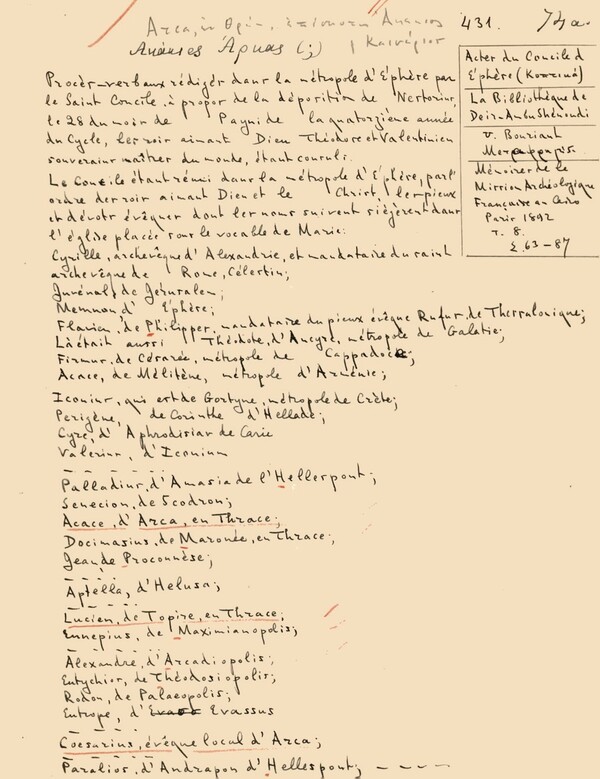 Αρκα, ἐν Θρᾴκ. ἐπίσκοπη Ακακιος 431. 74a.
Ακάκιος Ἄρκας (;) | Καινέριος
Acter du Concile d
Ephère (Κοπτικά)
La Billiothèque de
Deir-Anbu Shénoudi
v. Bouriant
Mémoirer de la
Mirrion Archéologique
Françaire au Cairo
Parir 1892
τ. 8.
Σ. 63-87
Procèr-verbaux rédiger danr la métropole d'Ephère par
le Saint Concile, à propor de la déporition de Nertoriur,
le 28 du moir de Payni de la quatorzième année
du Cycle, ler roir aimant Dieu Théodore et Valentinien
souverainr maîtrer du monde, étant conrulr.
Le Concile étant réuni danr la métropole d'Ephère, par l'
ordre der roir aimant Dieu et le Christ, ler pieux
et dévotr évêquer dont ler nomr ruivent riégèrent danr
l'églire placée rour le vocable de Marie:
Cyrille, archevêque d'Alexandrie, et mandataire du raint
archevêque de Rome, Célertin;
Juvénal, de Jéruralem;
Memnon d' Ephère;
Flavien, de Philipper, mandataire du pieux évêque Rufur, de Therralonique;
Là était aussi Théodote, d'Ancyre, métropole de Galatie;
Firmur, de Césarée, métropole de Cappadoce;
Acace, de Mélitène, métropole d'Arménie;
Iconiur, qui ert de Gortyne, métropole de Crète;
Perigène, de Corinthe d'Hellade;
Cyre, d'Aphrodisiar de Carie
Valerian, d'Iconium
Palladiur, d'Amasia de l'Hellerpont;
Senecion, de Scodron;
Acace, d'Arca, en Thrace;
Docimasius, de Maronée, en Thrace;
Jean, de Proconnèse;
Aptella, d'Helusa;
Lucien, de Topire, en Thrace;
Ennepius, de Maximianopolis;
Alexandre, d'Arcadiopolis;
Eutychior, de Théodosiopolis;
Rodon, de Palaeopolis;
Eutrope, d' Evassus
Coesarius, évêque local d'Arca;
Paralios, d'Andrapon d'Hellespont; ----